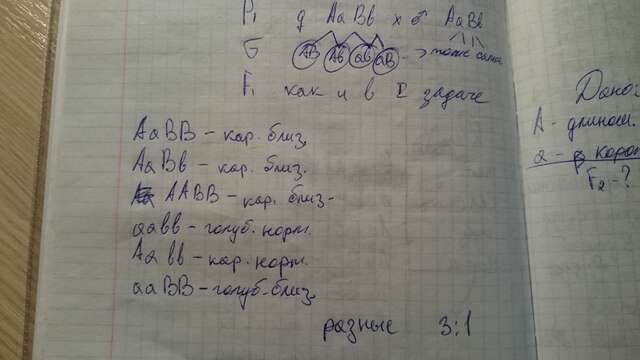 P₁ ♀ AaBb x ♂ AaBb
G AB Ab ab aB -> тоже самое
F₁ как и в I задаче
AaBB - кар. близ.
AaBb - кар. близ.
AABB - кар. близ.
aabb - голуб. норм.
Aa bb - кар. норм.
aaBB - голуб. близ.
разные 3:1
Дано:
A - длинош.
a - корот
F₂ - ?